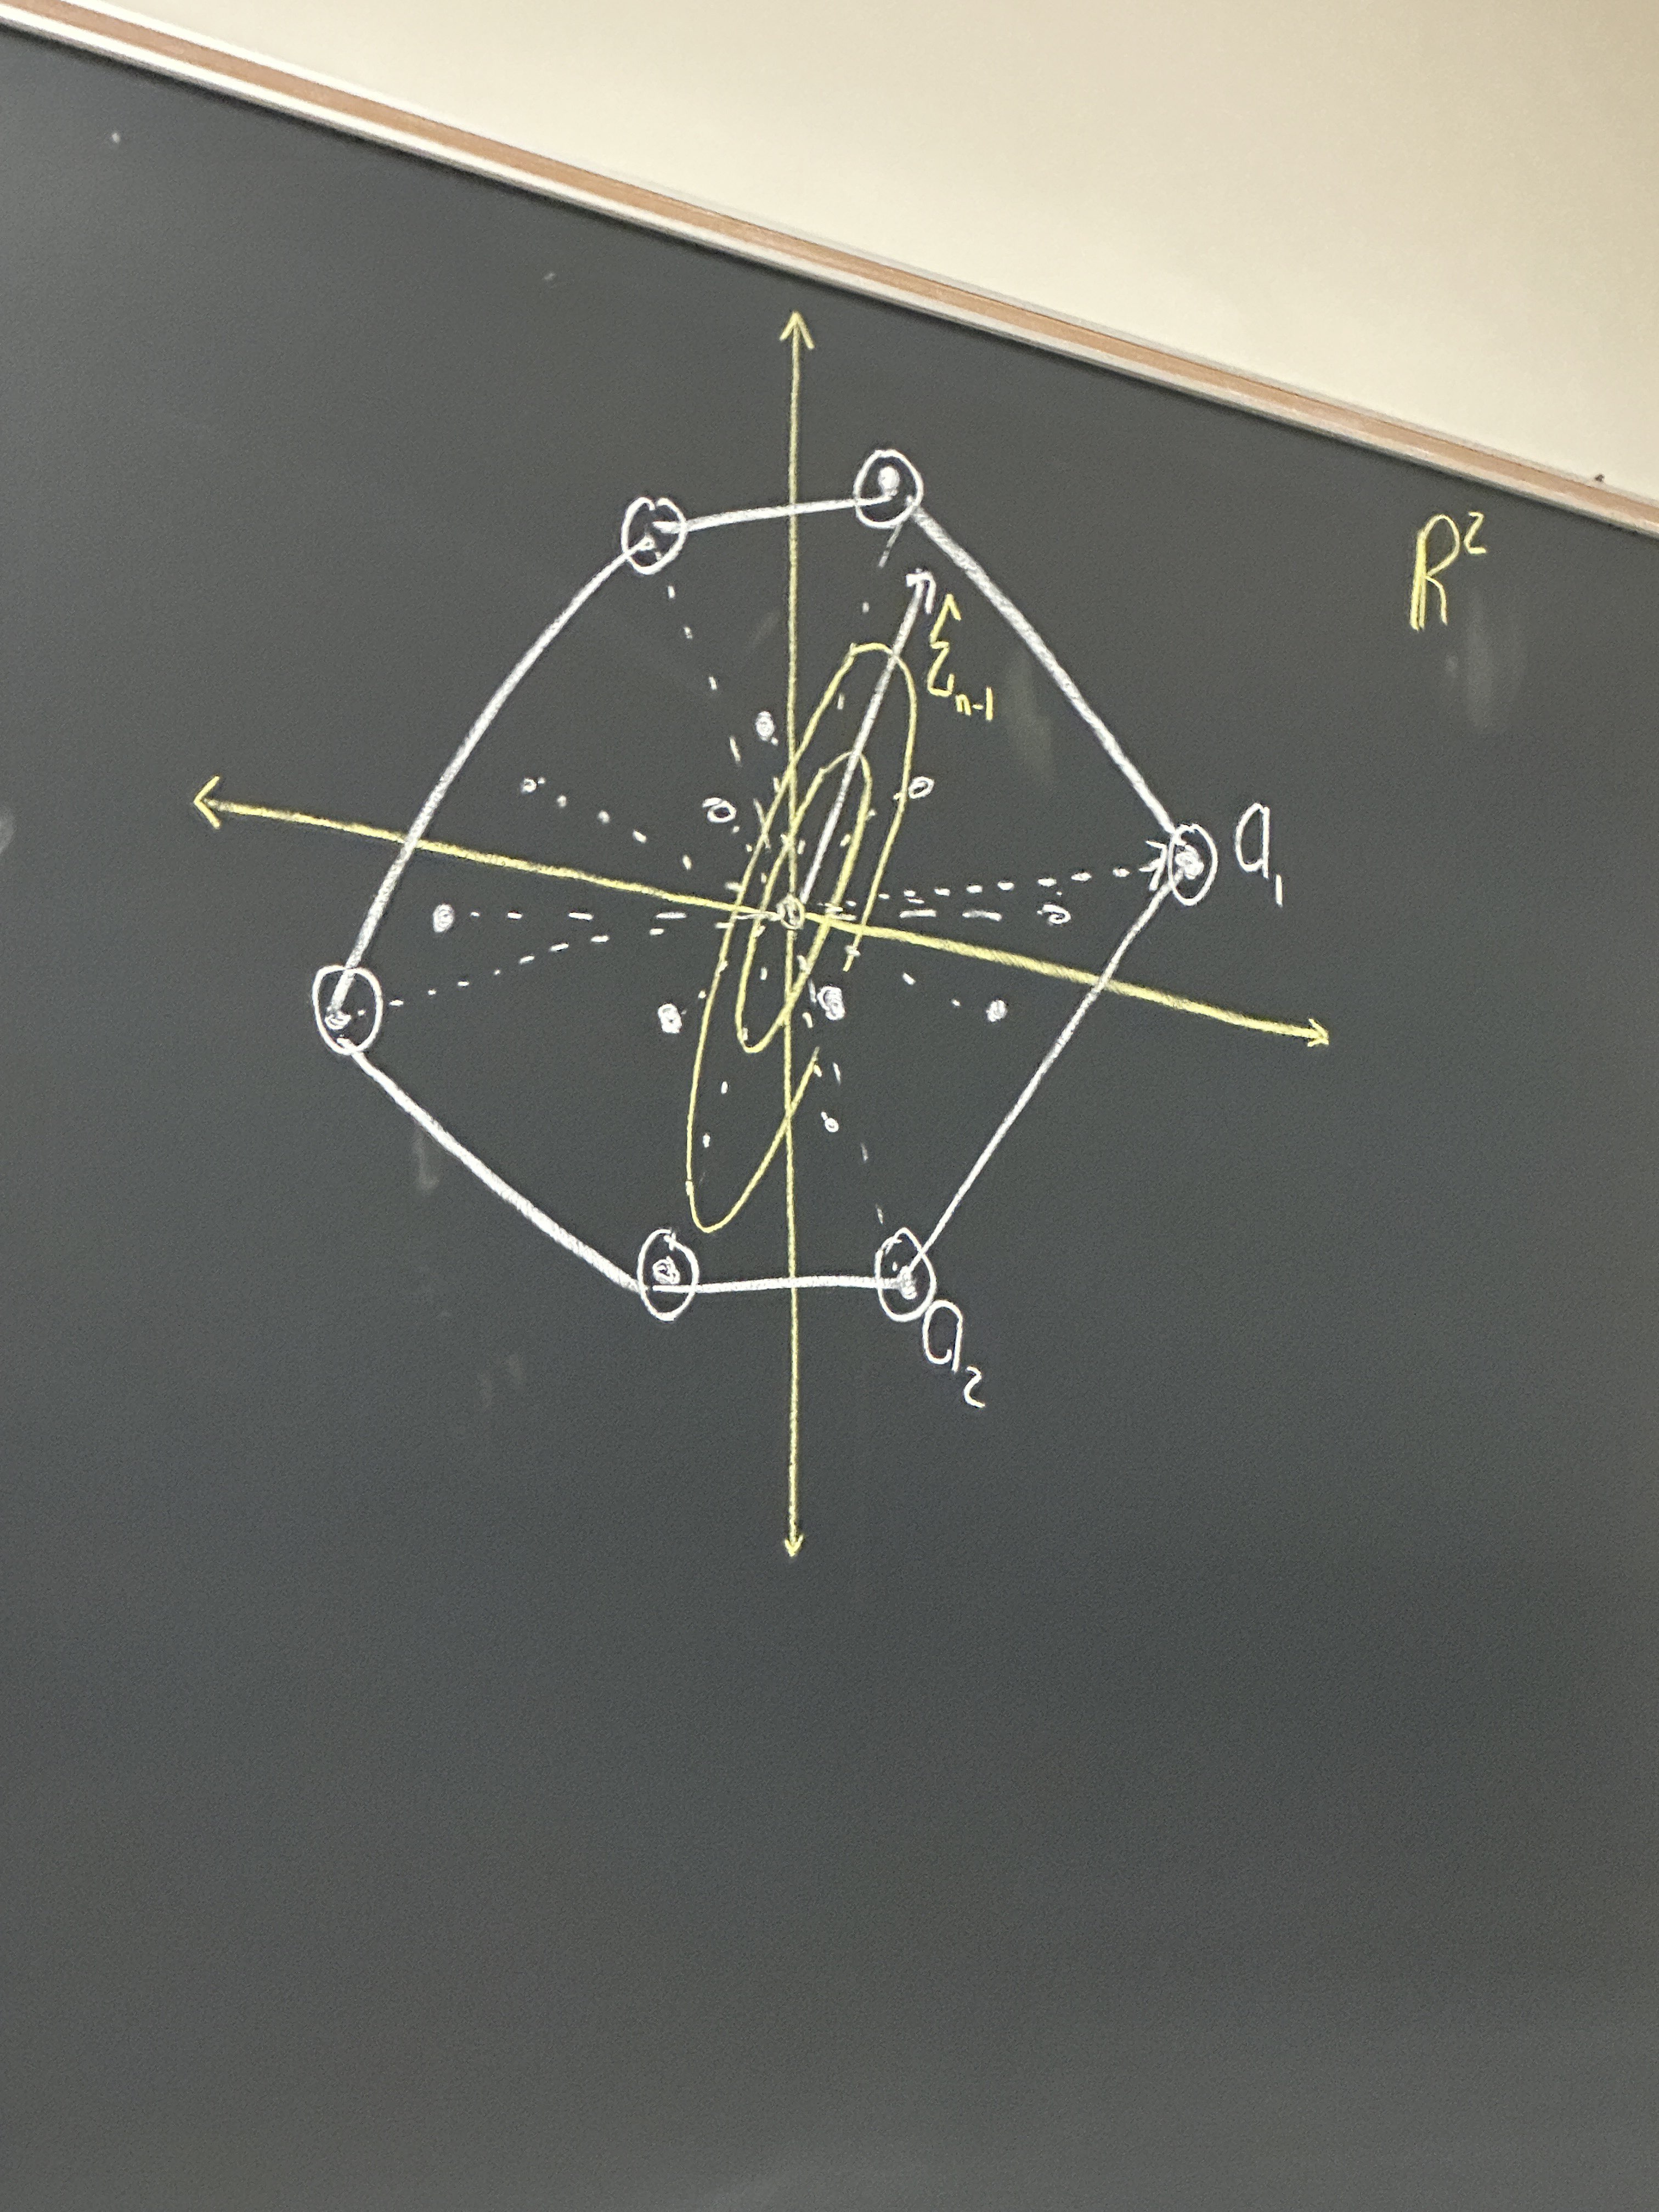 R²
Σ̂ₙ₋₁
a₁
a₂